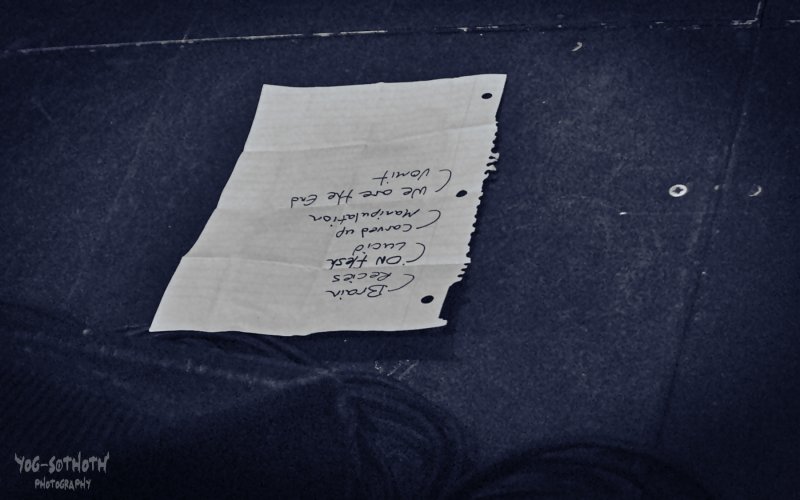 Brain
Recies
ON flesh
Lucid
Carved up
Manipulation
We are the End
Vomit
YOG-SOTHOTH
PHOTOGRAPHY